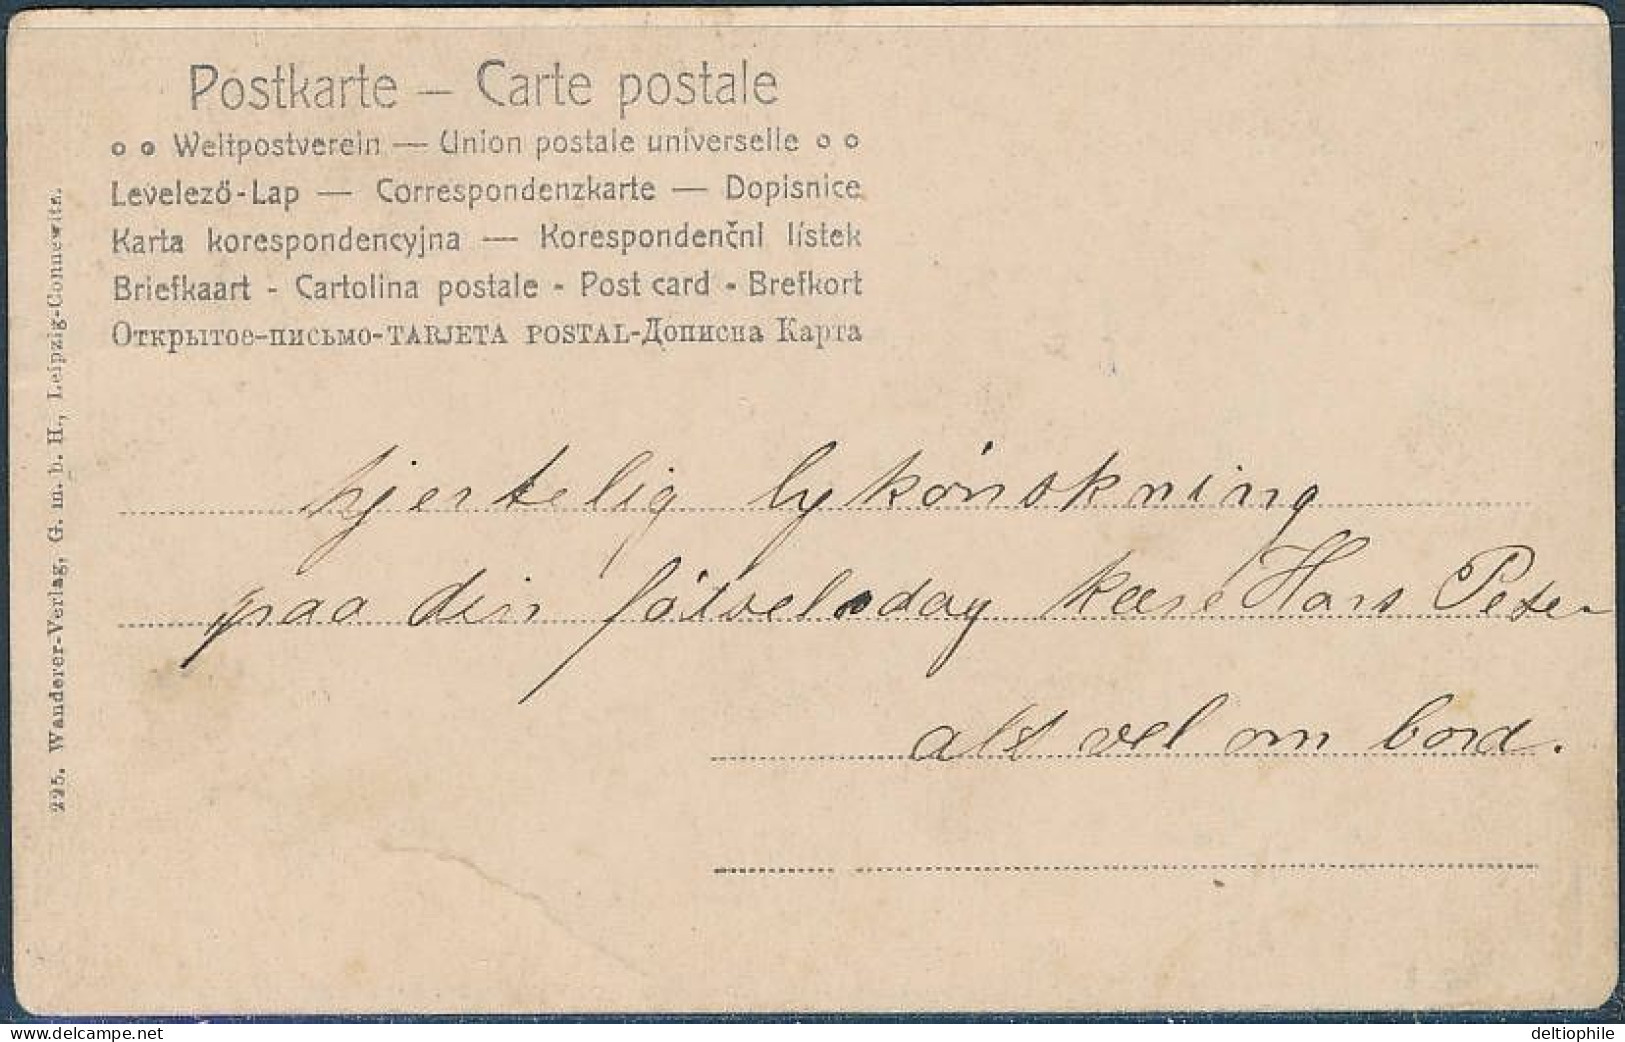 Postkarte – Carte postale
Weltpostverein — Union postale universelle
Levelező-Lap — Correspondenzkarte — Dopisnice
Karta korespondencyjna — Korespondenčnl lístek
Briefkaart - Cartolina postale - Post card - Brefkort
Открытое-письмо-TARJETA POSTAL-Дописна Карта
225. Wanderer-Verlag, G. m. b. H., Leipzig-Connewitz.
hjertelig lykönskning
paa din fötselsdag kære Hans Peter
alt vel om bord.
deltiophile